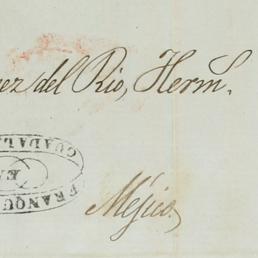 ez del Rio, Herm.
FRANQU
EN
GUADAL
Méjico.